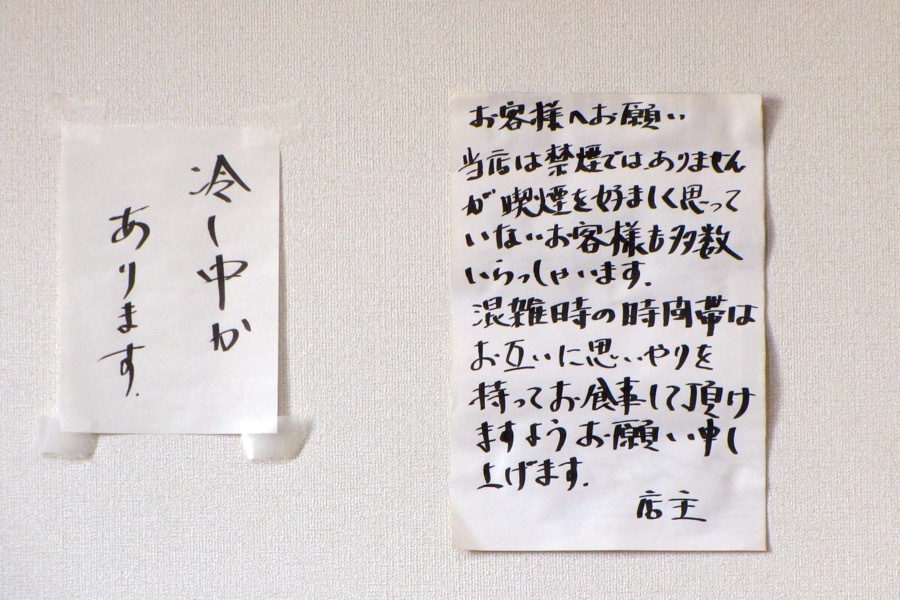 冷し中か
あります.
お客様へお願い
当店は禁煙ではありません
が喫煙を好ましく思って
いないお客様も多数
いらっしゃいます.
混雑時の時間帯は
お互いに思いやりを
持ってお食事して頂け
ますようお願い申し
上げます.
店主